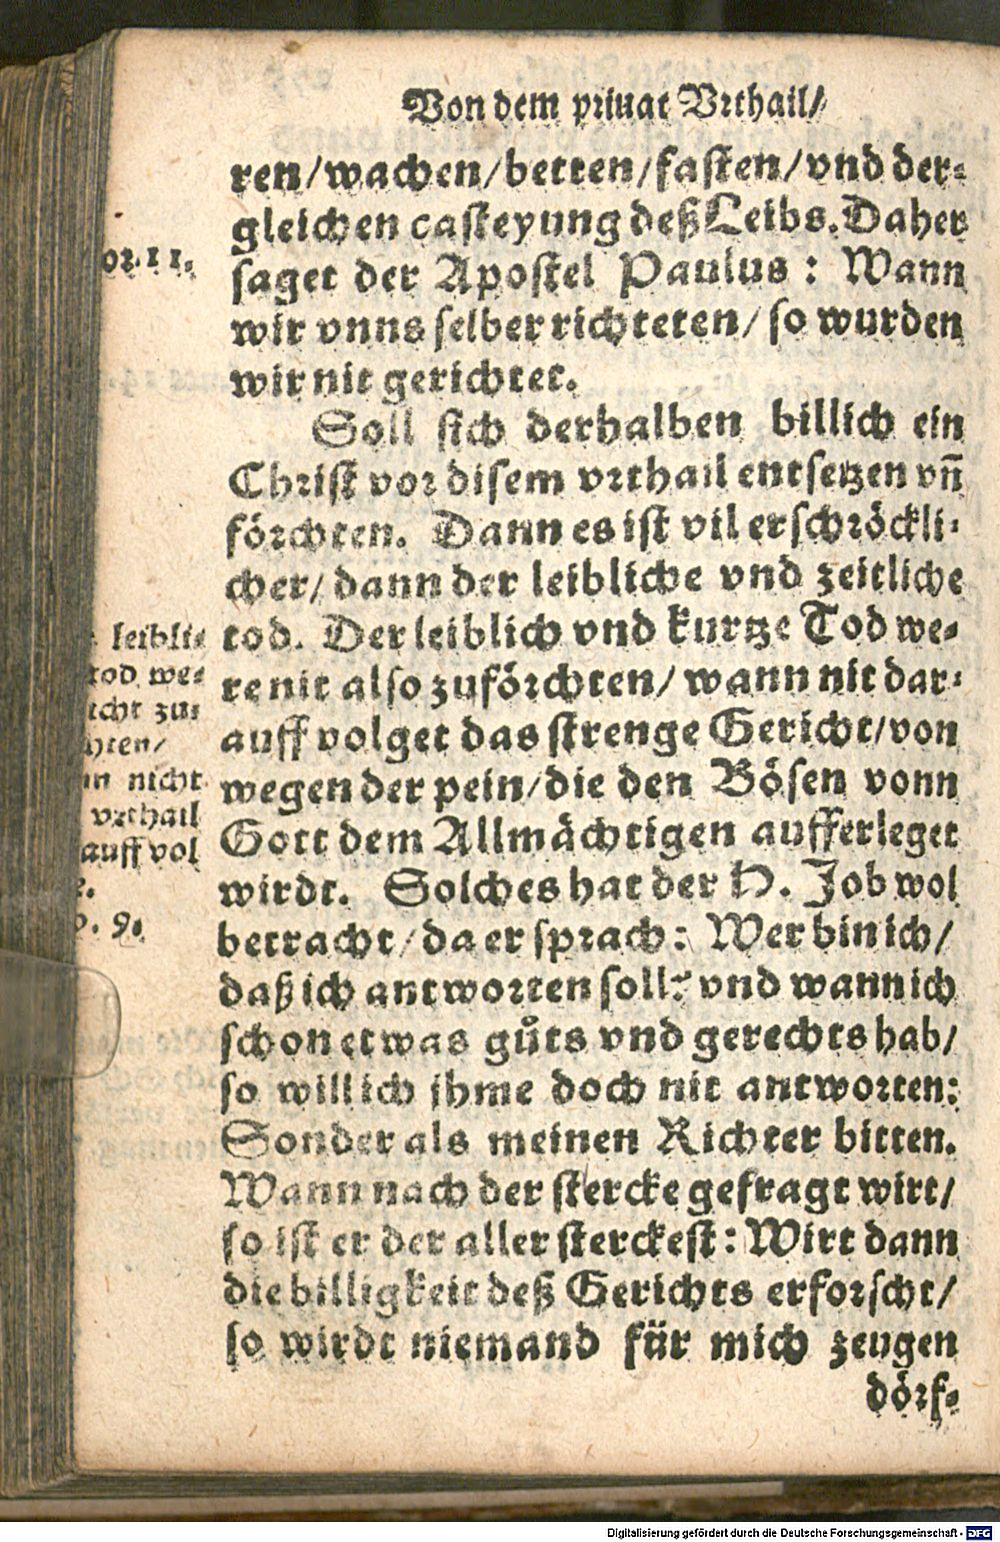 Von dem priuat Vrthail/
ren/wachen/betten/fasten/vnd der-
gleichen casteyung deß Leibs. Daher
or. 11.
saget der Apostel Paulus : Wann
wir vnns selber richteten/ so wurden
wir nit gerichtet.
Soll sich derhalben billich ein
Christ vor disem vrthail entsetzen vn̄
förchten. Dann es ist vil erschröckli-
cher/ dann der leibliche vnd zeitliche
tod. Der leiblich vnd kurtze Tod we-
re nit also zuförchten/ wann nit dar-
auff volget das strenge Gericht/ von
wegen der pein/ die den Bösen vonn
Gott dem Allmächtigen aufferleget
wirdt. Solches hat der H. Job wol
betracht/ da er sprach: Wer bin ich/
daß ich antworten soll? vnd wann ich
schon etwas gůts vnd gerechts hab/
so will ich ihme doch nit antworten:
Sonder als meinen Richter bitten.
Wann nach der stercke gefragt wirt/
so ist er der aller sterckest: Wirt dann
die billigkeit deß Gerichts erforscht/
so wirdt niemand für mich zeugen
dörf-
leibli-
tod we-
icht zu-
hten/
nn nicht
vrthail
auff vol
e.
b. 9.
Digitalisierung gefördert durch die Deutsche Forschungsgemeinschaft - DFG